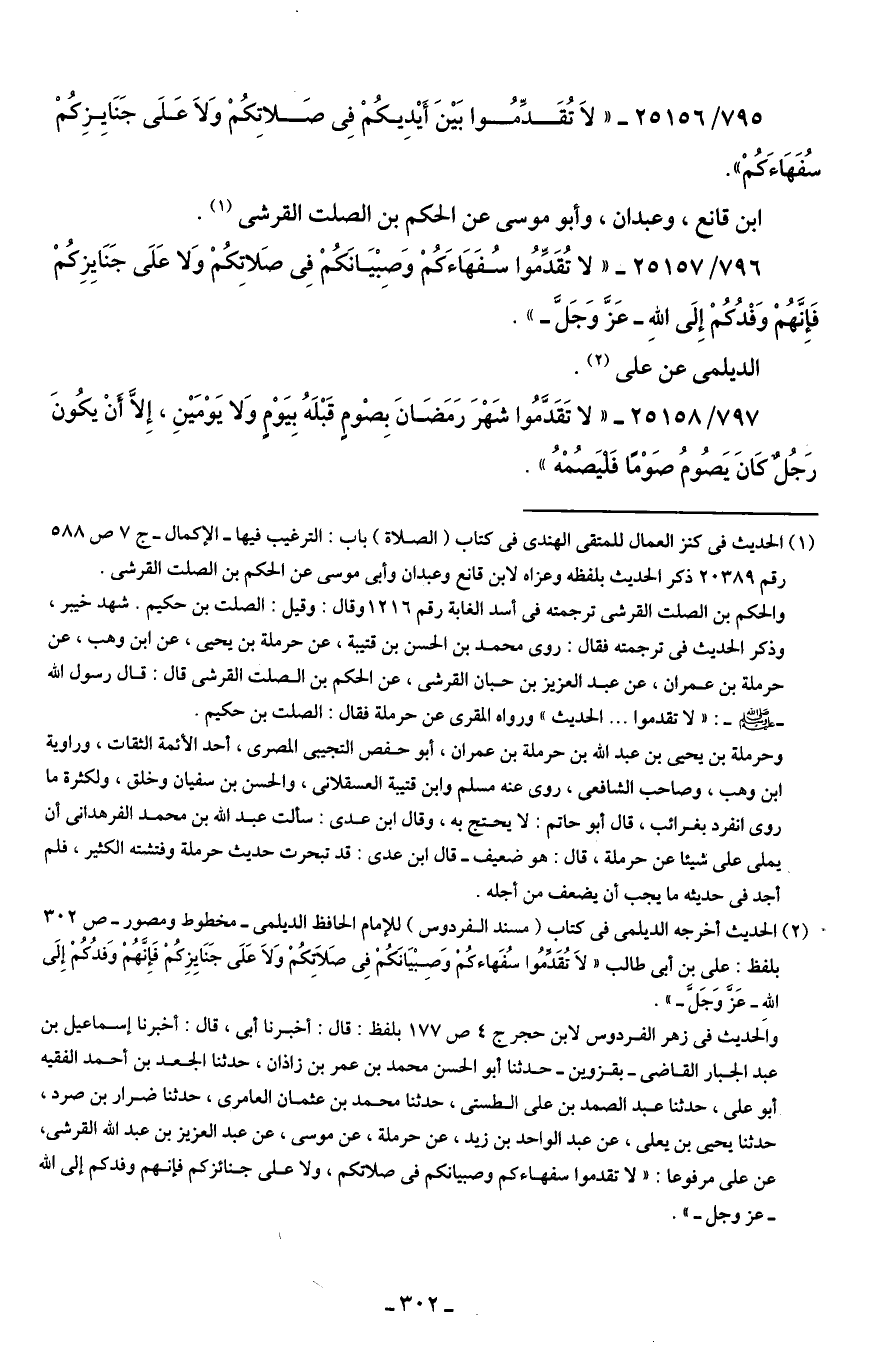 ٢٥١٥٦/٧٩٥ ـ « لاَ تُقَدِّمُوا بَيْنَ أَيْدِيكُمْ فِى صَلاتِكُمْ وَلاَ عَلَى جَنَايِزِكُمْ
سُفَهَاءَكُمْ».
ابن قانع ، وعبدان ، وأبو موسى عن الحكم بن الصلت القرشى (١) .
٢٥١٥٧/٧٩٦ ـ « لا تُقَدِّمُوا سُفَهَاءَكُمْ وَصِبْيَانَكُمْ فِى صَلاتِكُمْ وَلا عَلَى جَنَايِزِكُمْ
فَإِنَّهُمْ وَفْدُكُمْ إِلَى اللهِ ـ عَزَّ وَجَلَّ ـ » .
الديلمى عن على (٢) .
٢٥١٥٨/٧٩٧ ـ « لا تَقَدَّمُوا شَهْرَ رَمَضَانَ بِصْومٍ قَبْلَهُ بِيَوْمٍ وَلا يَوْمَيْنِ ، إِلاَّ أَنْ يكُونَ
رَجُلٌ كَانَ يَصُومُ صَوْمًا فَلْيَصُمْهُ » .
(١) الحديث فى كنز العمال للمتقى الهندى فى كتاب ( الصلاة ) باب : الترغيب فيها ـ الإكمال ـ ج ٧ ص ٥٨٨
رقم ٢٠٣٨٩ ذكر الحديث بلفظه وعزاه لابن قانع وعبدان وأبى موسى عن الحكم بن الصلت القرشى .
والحكم بن الصلت القرشى ترجمته فى أسد الغابة رقم ١٢١٦ وقال : وقيل : الصلت بن حكيم . شهد خيبر ،
وذكر الحديث فى ترجمته فقال : روى محمد بن الحسن بن قتيبة ، عن حرملة بن يحيى ، عن ابن وهب ، عن
حرملة بن عمران ، عن عبد العزيز بن حبان القرشى ، عن الحكم بن الصلت القرشى قال : قال رسول الله
ـ ﷺ ـ : « لا تقدموا ... الحديث » ورواه المقرى عن حرملة فقال : الصلت بن حكيم .
وحرملة بن يحيى بن عبد الله بن حرملة بن عمران ، أبو حفص التجيبى المصرى ، أحد الأئمة الثقات ، وراوية
ابن وهب ، وصاحب الشافعى ، روى عنه مسلم وابن قتيبة العسقلانى ، والحسن بن سفيان وخلق ، ولكثرة ما
روى انفرد بغرائب ، قال أبو حاتم : لا يحتج به ، وقال ابن عدى : سألت عبد الله بن محمد الفرهدانى أن
يملى على شيئا عن حرملة ، قال : هو ضعيف ـ قال ابن عدى : قد تبحرت حديث حرملة وفتشته الكثير ، فلم
أجد فى حديثه ما يجب أن يضعف من أجله .
(٢) الحديث أخرجه الديلمى فى كتاب ( مسند الفردوس ) للإمام الحافظ الديلمى ـ مخطوط ومصور ـ ص ٣٠٢
بلفظ : على بن أبى طالب « لاَ تُقَدِّمُوا سُفَهاءكُمْ وَصِبْيَانَكُمْ فِى صَلاَتَكُمْ وَلاَ عَلَى جَنَايِزِكُمْ فَإِنَّهُمْ وَفدُكُمْ إِلَى
الله ـ عَزَّ وَجَلَّ ـ » .
والحديث فى زهر الفردوس لابن حجر ج ٤ ص ١٧٧ بلفظ : قال : أخبرنا أبى ، قال : أخبرنا إسماعيل بن
عبد الجبار القاضى ـ بقزوين ـ حدثنا أبو الحسن محمد بن عمر بن زاذان ، حدثنا الجعد بن أحمد الفقيه
أبو على ، حدثنا عبد الصمد بن على الطستى ، حدثنا محمد بن عثمان العامرى ، حدثنا ضرار بن صرد ،
حدثنا يحيى بن يعلى ، عن عبد الواحد بن زيد ، عن حرملة ، عن موسى ، عن عبد العزيز بن عبد الله القرشى،
عن على مرفوعا : « لا تقدموا سفهاءكم وصبيانكم فى صلاتكم ، ولا على جنائزكم فإنهم وفدكم إلى الله
ـ عز وجل ـ » .
ـ ٣٠٢ ـ